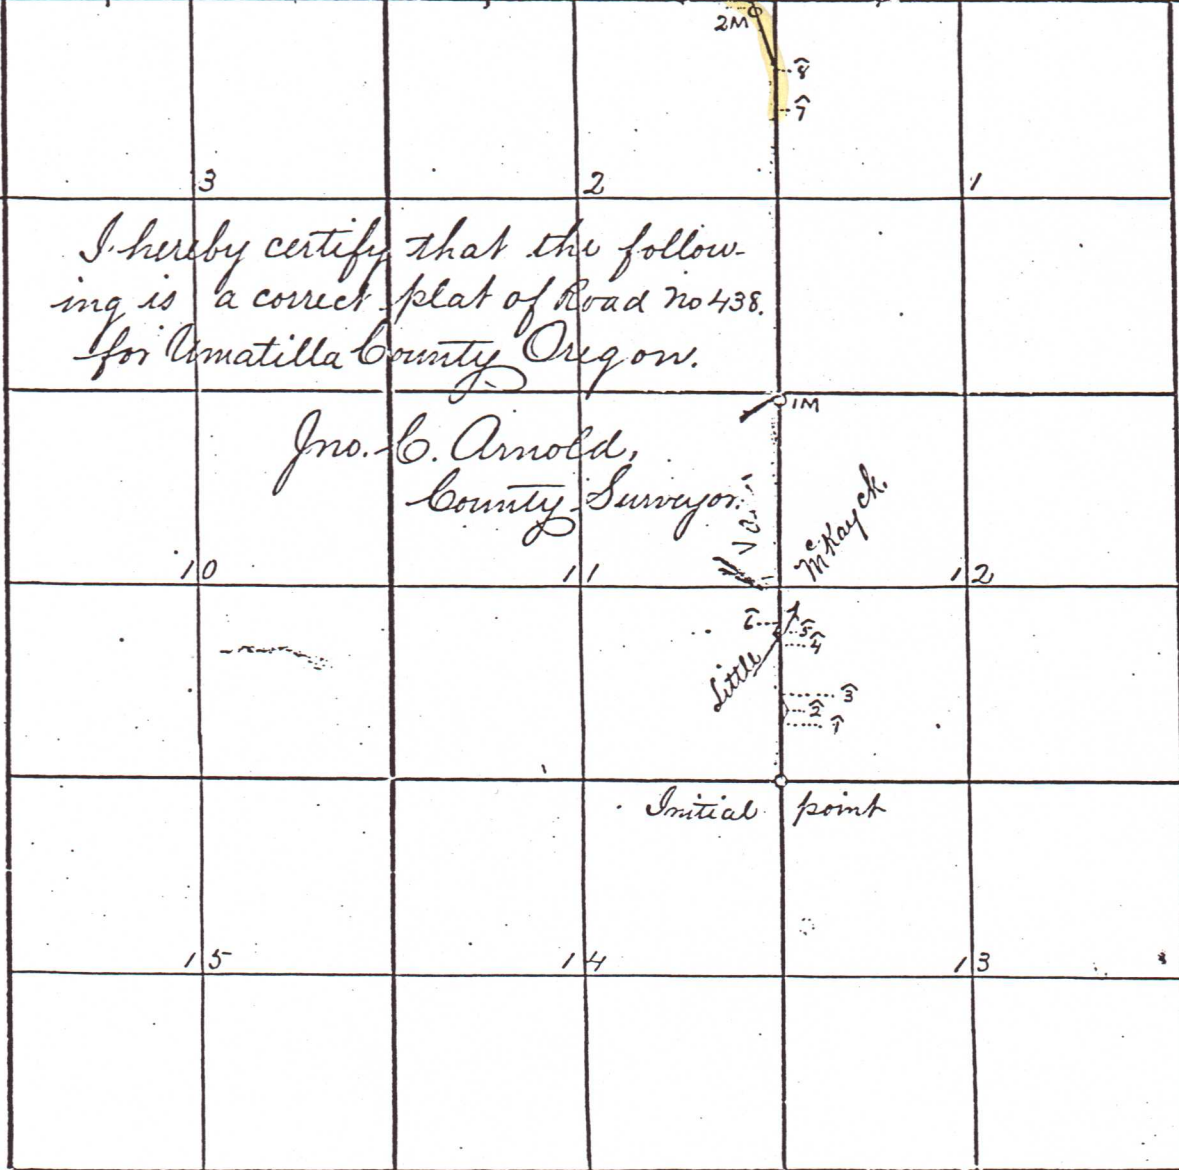 2M
8
7
3 2 1
I hereby certify that the follow-
ing is a correct plat of Road No 438.
for Umatilla County Oregon.
1M
Jno. C. Arnold,
County Surveyor.
McKay ck.
10 11 12
6
5
4
Little
3
2
1
Initial point
15 14 13